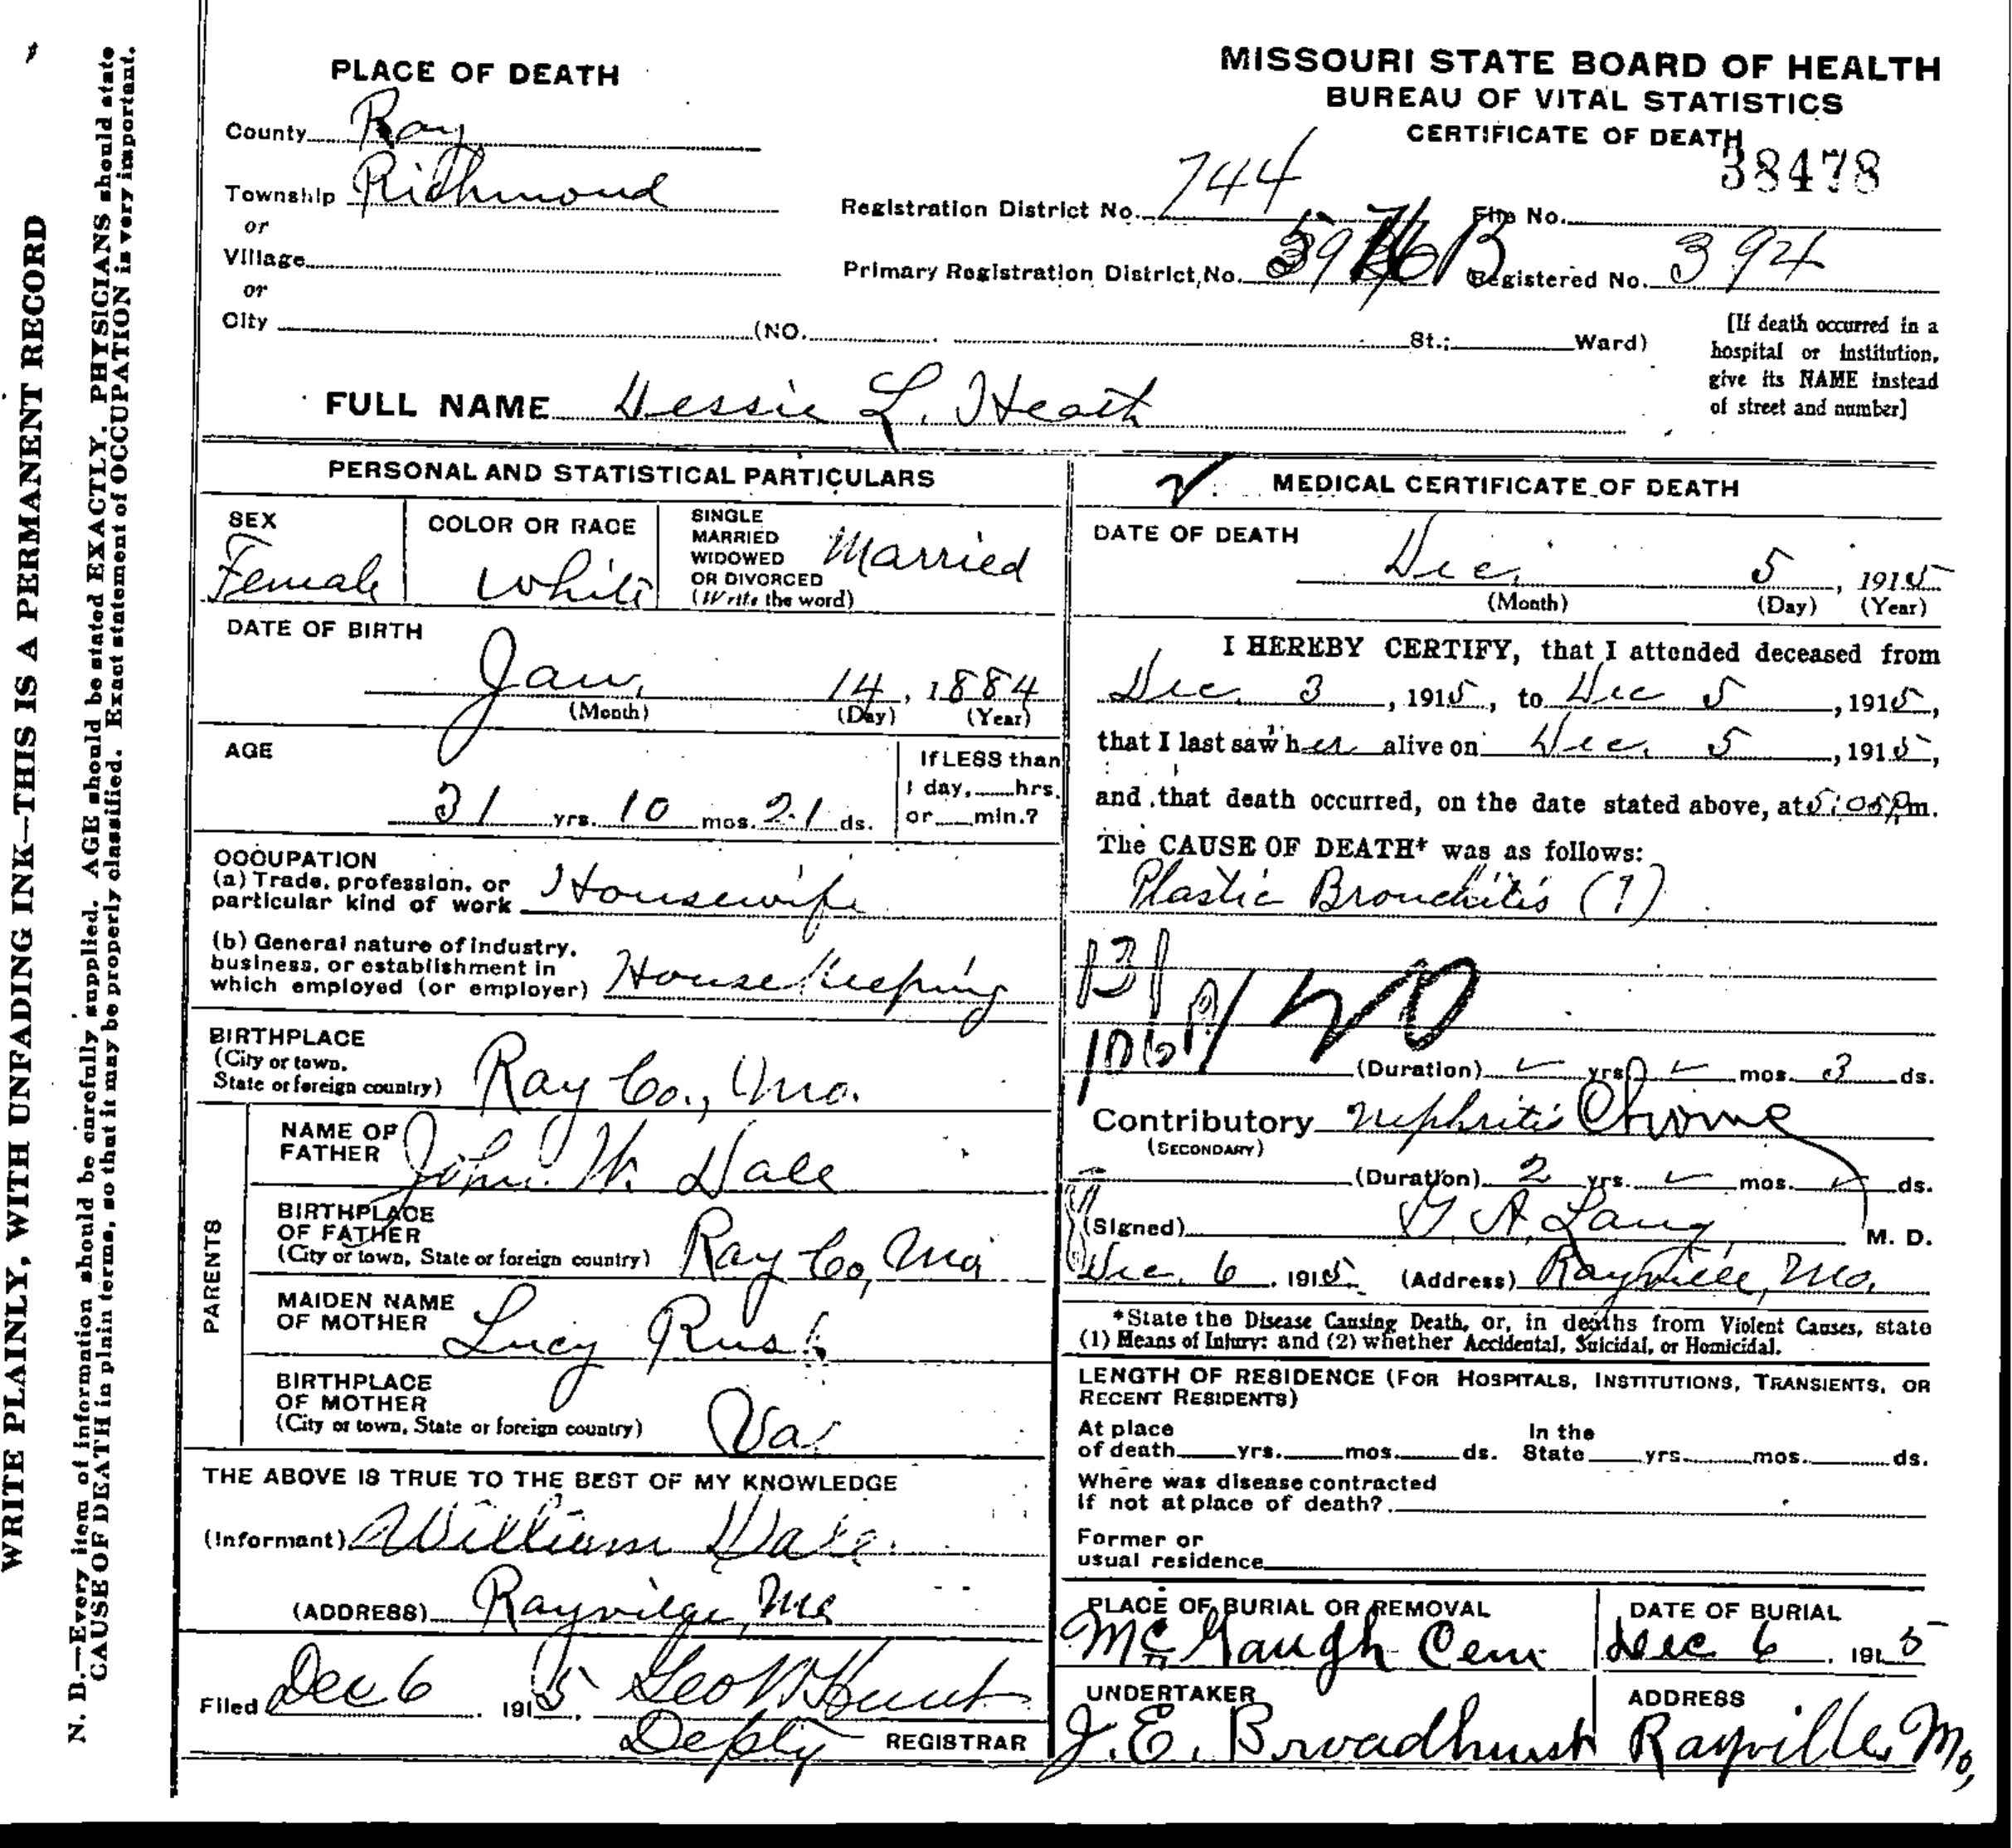 WRITE PLAINLY, WITH UNFADING INK—THIS IS A PERMANENT RECORD
N. B.—Every item of information should be carefully supplied. AGE should be stated EXACTLY. PHYSICIANS should state
CAUSE OF DEATH in plain terms, so that it may be properly classified. Exact statement of OCCUPATION is very important.
PLACE OF DEATH
County Ray
Township Richmond
or
Village
or
City (NO. St.; Ward)
MISSOURI STATE BOARD OF HEALTH
BUREAU OF VITAL STATISTICS
CERTIFICATE OF DEATH
38478
Registration District No. 744 File No.
Primary Registration District, No. B Registered No. 394
[If death occurred in a
hospital or institution,
give its NAME instead
of street and number]
FULL NAME Dessie L. Heath
PERSONAL AND STATISTICAL PARTICULARS
SEX
Female
COLOR OR RACE
White
SINGLE
MARRIED
WIDOWED
OR DIVORCED
(Write the word)
Married
DATE OF BIRTH
Jan. 14, 1884
(Month) (Day) (Year)
AGE
31 yrs. 10 mos. 21 ds.
If LESS than
1 day, hrs.
or min.?
OCCUPATION
(a) Trade, profession, or
particular kind of work Housewife
(b) General nature of industry,
business, or establishment in
which employed (or employer) House Keeping
BIRTHPLACE
(City or town,
State or foreign country) Ray Co., Mo.
PARENTS
NAME OF
FATHER John W. Dale
BIRTHPLACE
OF FATHER
(City or town, State or foreign country) Ray Co, Mo
MAIDEN NAME
OF MOTHER Lucy Rust
BIRTHPLACE
OF MOTHER
(City or town, State or foreign country) Va.
THE ABOVE IS TRUE TO THE BEST OF MY KNOWLEDGE
(Informant) William Dale
(ADDRESS) Rayville, Mo
Filed Dec 6, 1915, Geo W Hunt
Depty REGISTRAR
MEDICAL CERTIFICATE OF DEATH
DATE OF DEATH
Dec. 5, 1915
(Month) (Day) (Year)
I HEREBY CERTIFY, that I attended deceased from
Dec. 3, 1915, to Dec 5, 1915,
that I last saw her alive on Dec. 5, 1915,
and that death occurred, on the date stated above, at 5:05 P m.
The CAUSE OF DEATH* was as follows:
Plastic Bronchitis (?)
131
106
(Duration) yrs. mos. 3 ds.
Contributory Nephritis Chronic
(SECONDARY)
(Duration) 2 yrs. mos. ds.
(Signed) G. A. Lang, M. D.
Dec. 6, 1915. (Address) Rayville, Mo.
*State the Disease Causing Death, or, in deaths from Violent Causes, state
(1) Means of Injury; and (2) whether Accidental, Suicidal, or Homicidal.
LENGTH OF RESIDENCE (FOR HOSPITALS, INSTITUTIONS, TRANSIENTS, OR
RECENT RESIDENTS)
At place
of death yrs. mos. ds.
In the
State yrs. mos. ds.
Where was disease contracted
if not at place of death?
Former or
usual residence
PLACE OF BURIAL OR REMOVAL
McGaugh Cem
DATE OF BURIAL
Dec 6, 1915
UNDERTAKER
J. E. Broadhurst
ADDRESS
Rayville, Mo,